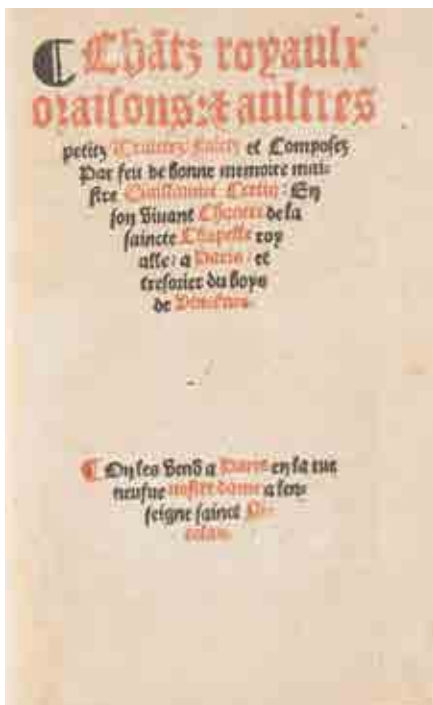 ¶ Chãtz royaulx
oraisons: & aultres
petitz Traitez faictz et Composez
Par feu de bonne memoire mai-
stre Guillaume Cretin: En
son vivant Chantre de la
saincte Chapelle roy
alle: a Paris: et
tresorier du boys
de Vincenes.
¶ On les vend a Paris en la rue
neufue nostre dame a len-
seigne sainct Ni-
colas.